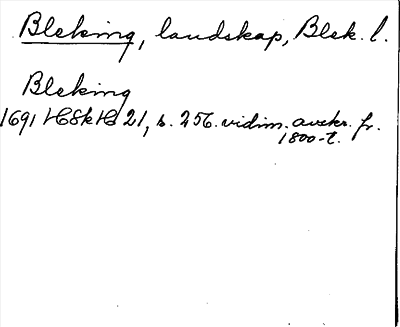 Bleking, landskap, Blek. l.
Bleking
1691 HSkH 21, s. 256. vidim. avskr. fr.
1800-t.